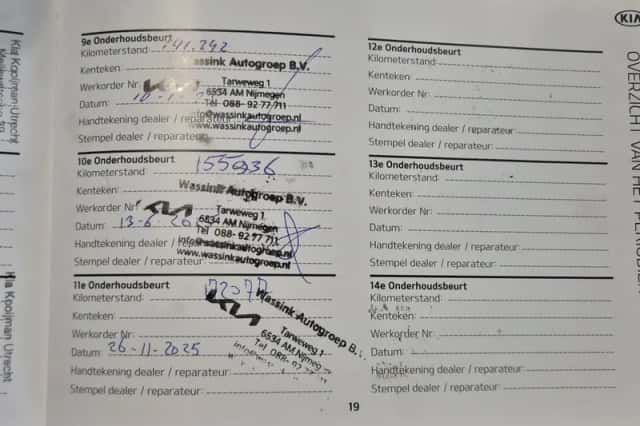 Kia Kooijman Utrecht
Kia Kooijman Utrecht
9e Onderhoudsbeurt
Kilometerstand: 141.242
Kenteken:
Werkorder Nr:
Datum:
Handtekening dealer / reparateur:
Stempel dealer / reparateur:
Wassink Autogroep B.V.
Tarweweg 1
6534 AM Nijmegen
Tel 088- 92 77 711
info@wassinkautogroep.nl
www.wassinkautogroep.nl
10e Onderhoudsbeurt
Kilometerstand: 155936
Kenteken:
Werkorder Nr:
Datum: 13-6
Handtekening dealer / reparateur:
Stempel dealer / reparateur:
KIA
Wassink Autogroep B.V.
Tarweweg 1
6534 AM Nijmegen
Tel 088- 92 77 711
info@wassinkautogroep.nl
www.wassinkautogroep.nl
11e Onderhoudsbeurt
Kilometerstand: 172077
Kenteken:
Werkorder Nr:
Datum: 26-11-2025
Handtekening dealer / reparateur:
Stempel dealer / reparateur:
KIA
Wassink Autogroep B.V.
Tarweweg 1
6534 AM Nijmegen
Tel 088- 92 77
12e Onderhoudsbeurt
Kilometerstand:
Kenteken:
Werkorder Nr:
Datum:
Handtekening dealer / reparateur:
Stempel dealer / reparateur:
13e Onderhoudsbeurt
Kilometerstand:
Kenteken:
Werkorder Nr:
Datum:
Handtekening dealer / reparateur:
Stempel dealer / reparateur:
14e Onderhoudsbeurt
Kilometerstand:
Kenteken:
Werkorder Nr:
Datum:
Handtekening dealer / reparateur:
Stempel dealer / reparateur:
19
KIA
OVERZICHT VAN HET